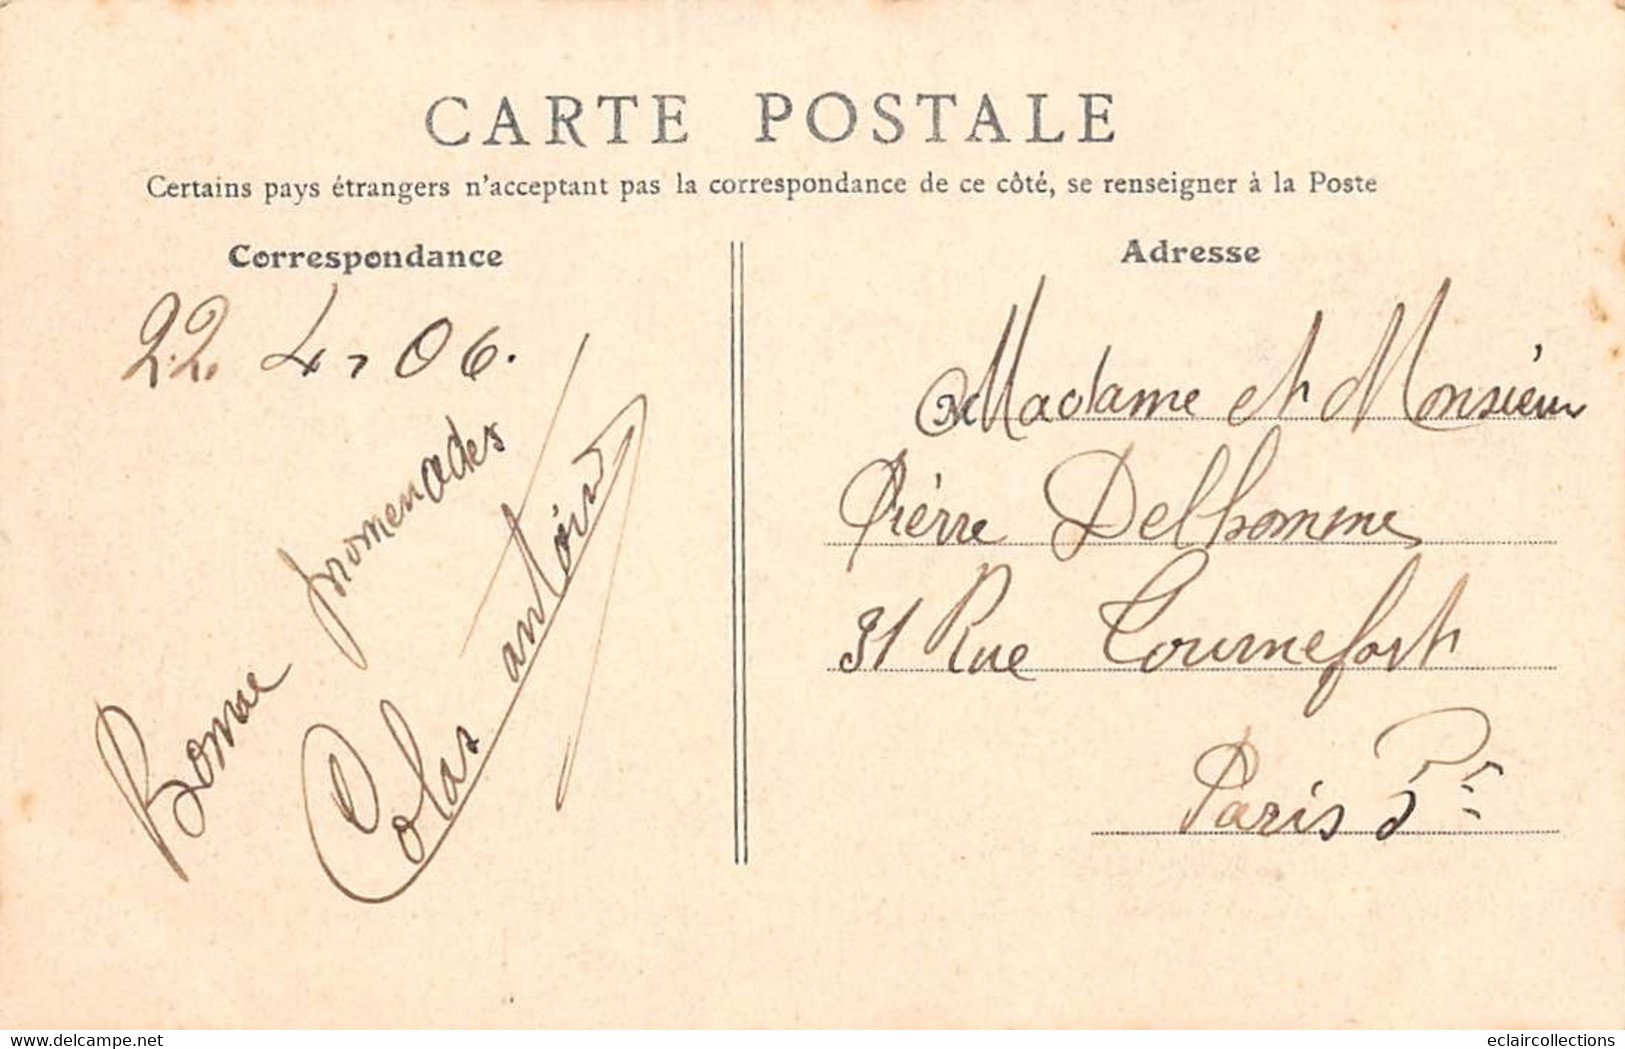 CARTE POSTALE
Certains pays étrangers n'acceptant pas la correspondance de ce côté, se renseigner à la Poste
Correspondance
22. 4, 06.
Bonne promenades
Colas antoine
Adresse
Madame et Monsieur
Piérre Delhomme
31 Rue Tournefort
Paris 5e
www.delcampe.net
eclaircollections